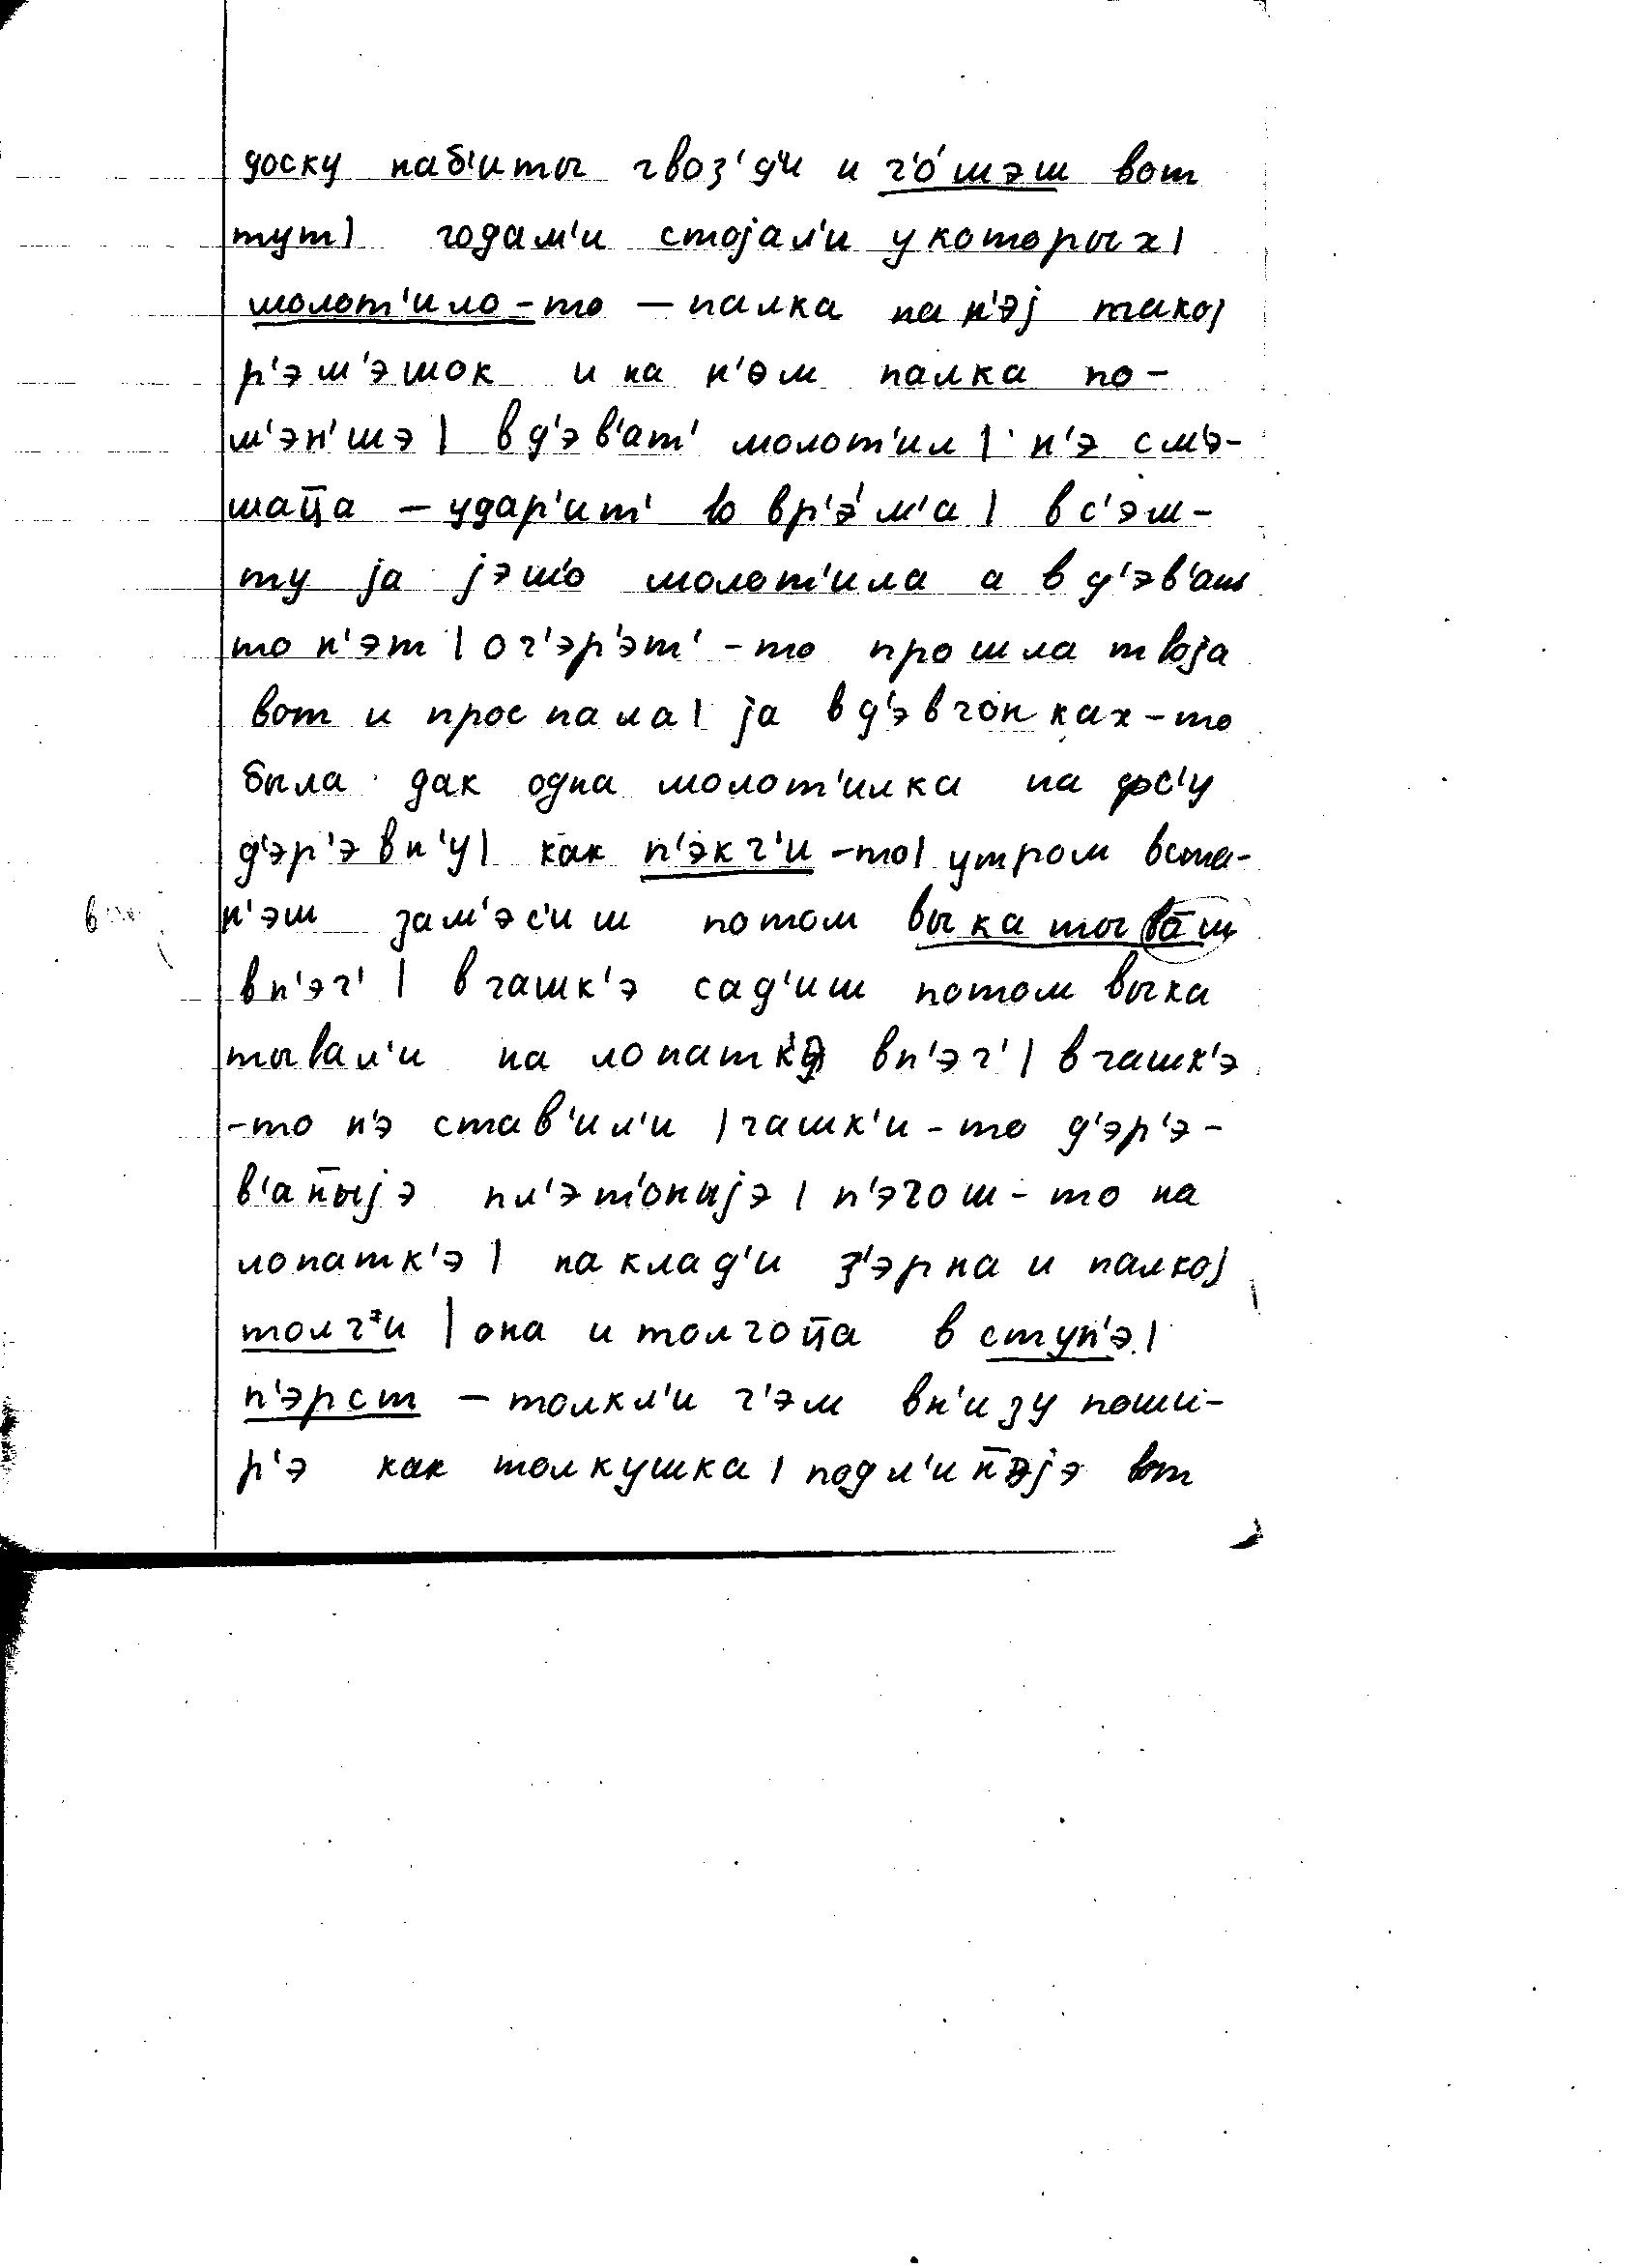 доску наб'иты гвоз'д'и и ч'о́шэш вот
тут| годам'и стојал'и у которых|
молот'ило-то — палка на н'эј такој
р'эм'эшок и на н'ом палка по-
м'эн'шэ| в д'эв'ат' молот'ил| н'э см'э-
шац̄а — удар'ит' во вр'э́м'а| в с'эм-
ту ја јэш'о молот'ила а в д'эв'ат
то н'эт| оч'эр'эт'-то прошла твоја
вот и проспала| ја в д'эвчонках-то
была дак одна молот'илка на фс'у
д'эр'эвн'у| как п'экч'и-то| утром вста-
н'эш зам'эс'иш потом выкатыва̄ш
в п'эч'| в чашк'э сад'иш потом выка
тывал'и на лопатк'э в п'эч'| в чашк'э
-то н'э став'ил'и| чашк'и-то д'эр'э-
в'ан̄ыјэ пл'эт'оныјэ| п'эчош-то на
лопатк'э| наклад'и з'эрна и палкој
толч'и| она и толчоц̄а в ступ'э|
п'эрст — толкл'и ч'эм вн'изу поши-
р'э как толкушка| подл'ин̄эјэ вот